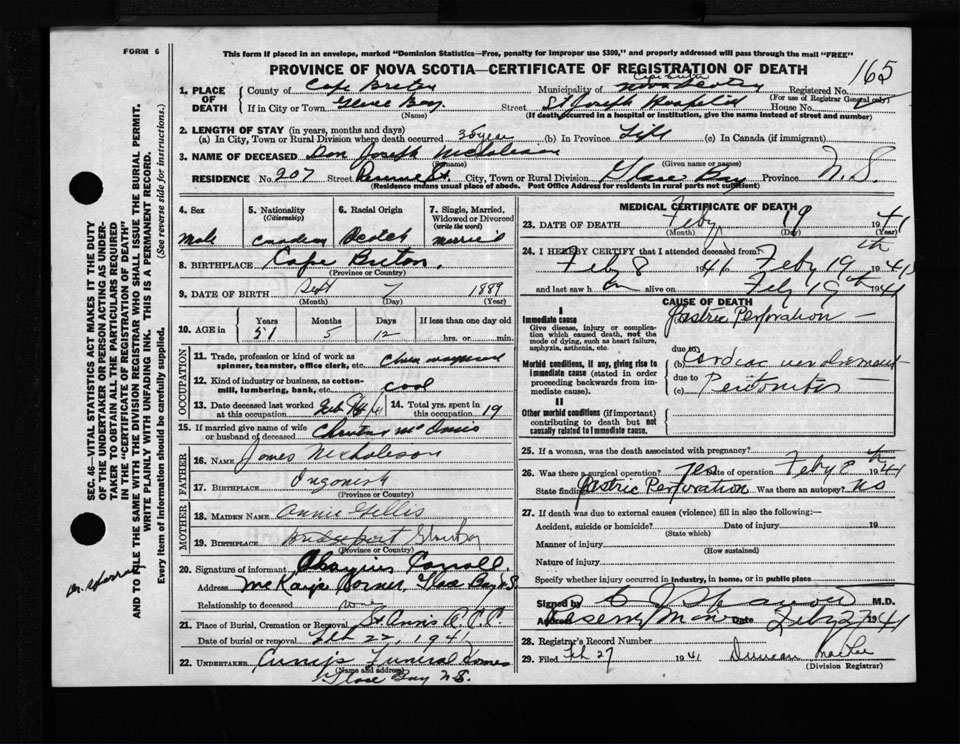 FORM 6
This form if placed in an envelope, marked "Dominion Statistics—Free, penalty for improper use $300," and properly addressed will pass through the mail "FREE"
PROVINCE OF NOVA SCOTIA—CERTIFICATE OF REGISTRATION OF DEATH
165
SEC. 46—VITAL STATISTICS ACT MAKES IT THE DUTY
OF THE UNDERTAKER OR PERSON ACTING AS UNDER-
TAKER TO OBTAIN ALL THE PARTICULARS REQUIRED
IN THE "CERTIFICATE OF REGISTRATION OF DEATH"
AND TO FILE THE SAME WITH THE DIVISION REGISTRAR WHO SHALL ISSUE THE BURIAL PERMIT.
WRITE PLAINLY WITH UNFADING INK. THIS IS A PERMANENT RECORD.
Every item of Information should be carefully supplied. (See reverse side for instructions.)
1. PLACE OF DEATH
County of Cape Breton Municipality of Registered No.
(For use of Registrar General only)
If in City or Town Glace Bay Street St Joseph Hospital House No.
(Name) (If death occurred in a hospital or institution, give the name instead of street and number)
2. LENGTH OF STAY (in years, months and days)
(a) In City, Town or Rural Division where death occurred 35 year (b) In Province Life (c) In Canada (if immigrant)
3. NAME OF DECEASED Dan Joseph Nicholson
(Surname) (Given name or names)
RESIDENCE No. 207 Street Reserve St City, Town or Rural Division Glace Bay Province N.S.
(Residence means usual place of abode. Post Office Address for residents in rural parts not sufficient)
4. Sex 5. Nationality (Citizenship) 6. Racial Origin 7. Single, Married, Widowed or Divorced (write the word)
Male Canadian Scotch Married
8. BIRTHPLACE Cape Breton
(Province or Country)
9. DATE OF BIRTH Sept 7 1889
(Month) (Day) (Year)
10. AGE in Years Months Days If less than one day old
51 5 12 hrs. or min.
OCCUPATION
11. Trade, profession or kind of work as spinner, teamster, office clerk, etc.
12. Kind of industry or business, as cotton-mill, lumbering, bank, etc. coal
13. Date deceased last worked at this occupation 14. Total yrs. spent in this occupation 19
15. If married give name of wife or husband of deceased McInnis
FATHER
16. Name James Nicholson
17. Birthplace Ingonish
(Province or Country)
MOTHER
18. Maiden Name Annie Gillis
19. Birthplace Bridgeport
(Province or Country)
20. Signature of informant Aloysius Carroll
Address McKay's Corner, Glace Bay N.S
Relationship to deceased
21. Place of Burial, Cremation or Removal St Anns R.C.C.
Date of burial or removal Feb 22, 1941
22. UNDERTAKER Curry's Funeral Home
(Name and address)
Glace Bay N.S.
MEDICAL CERTIFICATE OF DEATH
23. DATE OF DEATH Feby 19 1941
(Month) (Day) (Year)
24. I HEREBY CERTIFY that I attended deceased from:
Feby 8 1941 Feby 19th 1941
and last saw h im alive on Feby 19th 1941
CAUSE OF DEATH
I
Immediate cause
Give disease, injury or complication which caused death, not the mode of dying, such as heart failure, asphyxia, asthenia, etc.
Gastric Perforation
Morbid conditions, if any, giving rise to immediate cause (stated in order proceeding backwards from immediate cause).
due to
(b) Cardiac
due to
(c) Peritonitis
II
Other morbid conditions (if important) contributing to death but not causally related to immediate cause.
25. If a woman, was the death associated with pregnancy?
26. Was there a surgical operation? Yes Date of operation Feby 8th 1941
State findings Gastric Perforation Was there an autopsy? No
27. If death was due to external causes (violence) fill in also the following:—
Accident, suicide or homicide? Date of injury 19
(State which)
Manner of injury
(How sustained)
Nature of injury
Specify whether injury occurred in industry, in home, or in public place
Signed by M.D.
Date Feby 27 1941
28. Registrar's Record Number
29. Filed Feb 27 1941 Duncan
(Division Registrar)